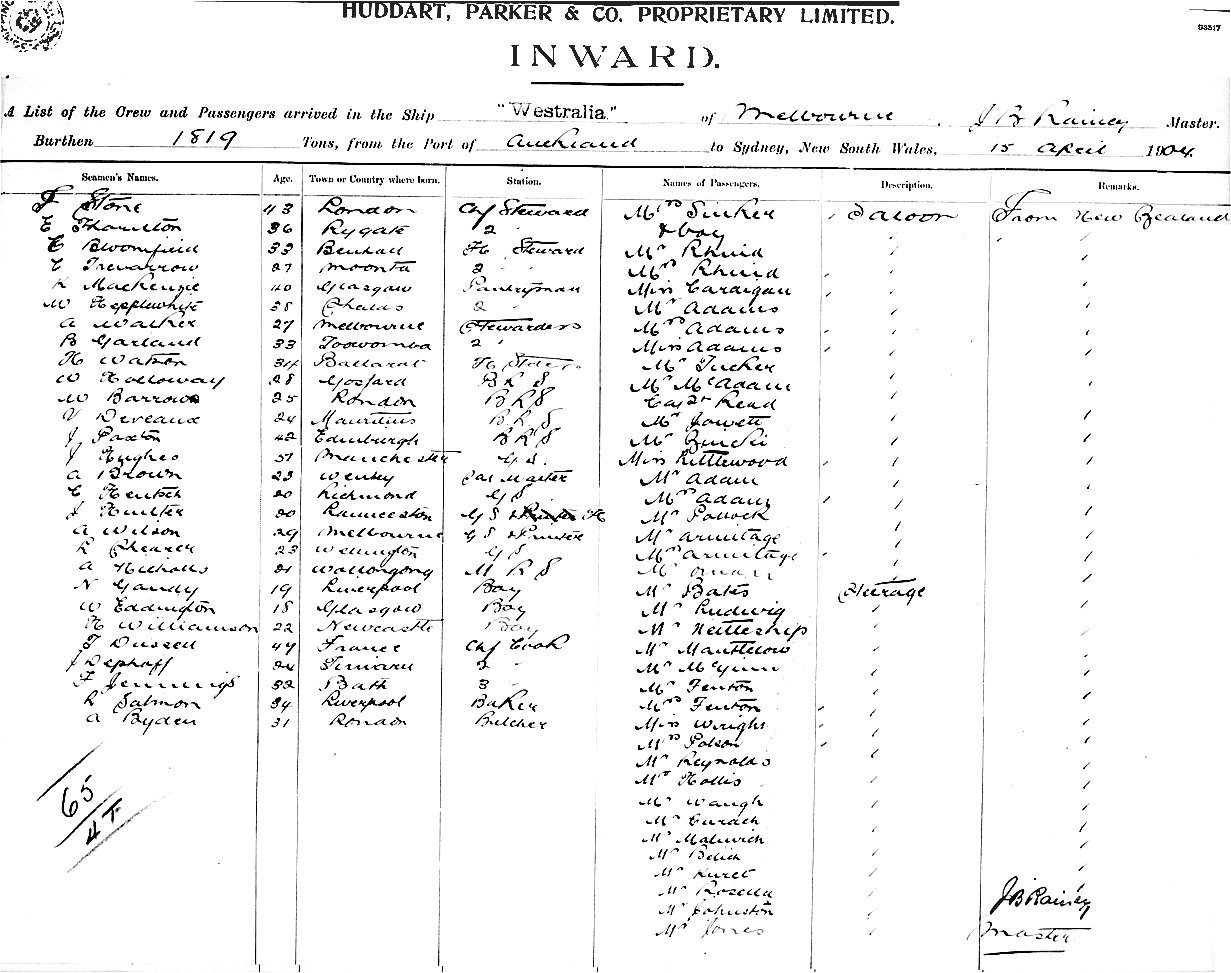 HUDDART, PARKER & CO. PROPRIETARY LIMITED.
93517
INWARD.
A List of the Crew and Passengers arrived in the Ship "Westralia" of Melbourne, J B Rainey Master.
Burthen 1819 Tons, from the Port of Auckland to Sydney, New South Wales, 15 April 1904.
Seamen's Names. Age. Town or Country where born. Station. Names of Passengers. Description. Remarks.
F Stone 43 London Chf Steward Mrs Sinker Saloon From New Zealand
E Thornton 36 Rygate 2 " & boy
C Bloomfield 33 Benhall Steward Mr Rhind
C Trevarrow 27 Moonta 2 " Mrs Rhind
K MacKenzie 40 Glasgow Pantryman Miss Cardigan
W Hepplewhite 28 2 " Mr Adams
A Walker 27 Melbourne Stewardess Mrs Adams
B Garland 33 Toowomba 2 " Miss Adams
H Watson 34 Ballarat Mr Tucker
W Holloway 28 Gosford B R S Mr McAdam
W Barrows 25 London B R S Capt Read
V Deveaux 24 Mauritius B R S Mr Jowett
J Paxton 42 Edinburgh B R S Mr
J Hughes 51 Manchester G S Miss Kittlewood
A Brown 23 Mr Adam
C Hentsch 20 Richmond G S Mrs Adam
J Hunter 20 Launceston G S Mr Pollock
A Wilson 29 Melbourne G S & Printer Mr Armitage
Shearer 23 Wellington G S Mrs Armitage
A Nicholls 21 Wollongong M R S Mr
N Gandy 19 Liverpool Boy Mr Bates Steerage
W Eddington 18 Glasgow Boy Mr Ludwig
H Williamson 22 Newcastle Boy Mr Nettleship
F Dussell 47 France Chf Cook Mr Manttelow
J Dephoff 24 Timaru 2 " Mr McGinn
F Jennings 32 Bath 3 " Mr Fenton
R Salmon 34 Liverpool Baker Mrs Fenton
A Byden 31 London Butcher Miss Wright
Mrs Polson
Mr Reynolds
Mr Hollis
Mr Waugh
Mr Curach
Mr Malwich
Mr Belich
Mr Kuret
Mr Rosella
Mr Johnston
Mr Jones
65
4
J B Rainey
Master